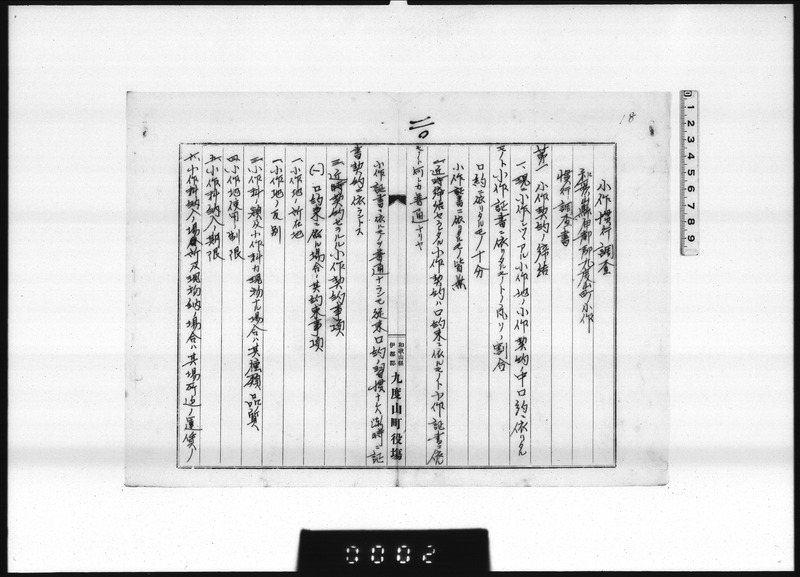 18
二〇
小作慣行調査
和歌山縣伊都郡九度山町小作
慣行調査書
第一 小作契約ノ締結
一、現ニ小作シツヽアル小作地ノ小作契約中口約ニ依リタル
モノト小作証書ニ依リタルモノトノ凡ソノ割合
口約ニ依リタルモノ十分
小作証書ニ依リタルモノ皆無
二、近時締結セラルヽ小作契約ハ口約束ニ依ルモノト小作証書ニ依ル
モノト何レカ普通ナリヤ
小作証書ニ依ルモノ普通ナラシモ従来口約ノ習慣
書契約ニ依ラントス
三、近時契約セラルヽ小作契約事項
(一) 口約束ニ依ル場合ノ其約束事項
一 小作地ノ所在地
二 小作地ノ反別
三 小作料ノ額及小作料カ現物ナル場合ハ其種類品質
四 小作地使用ノ制限
五 小作料納入ノ期限
六 小作料納入ノ場所及現物納ノ場合ハ其場所迄ノ運賃
和歌山縣
伊都郡
九度山町役場
0 1 2 3 4 5 6 7 8 9
0002